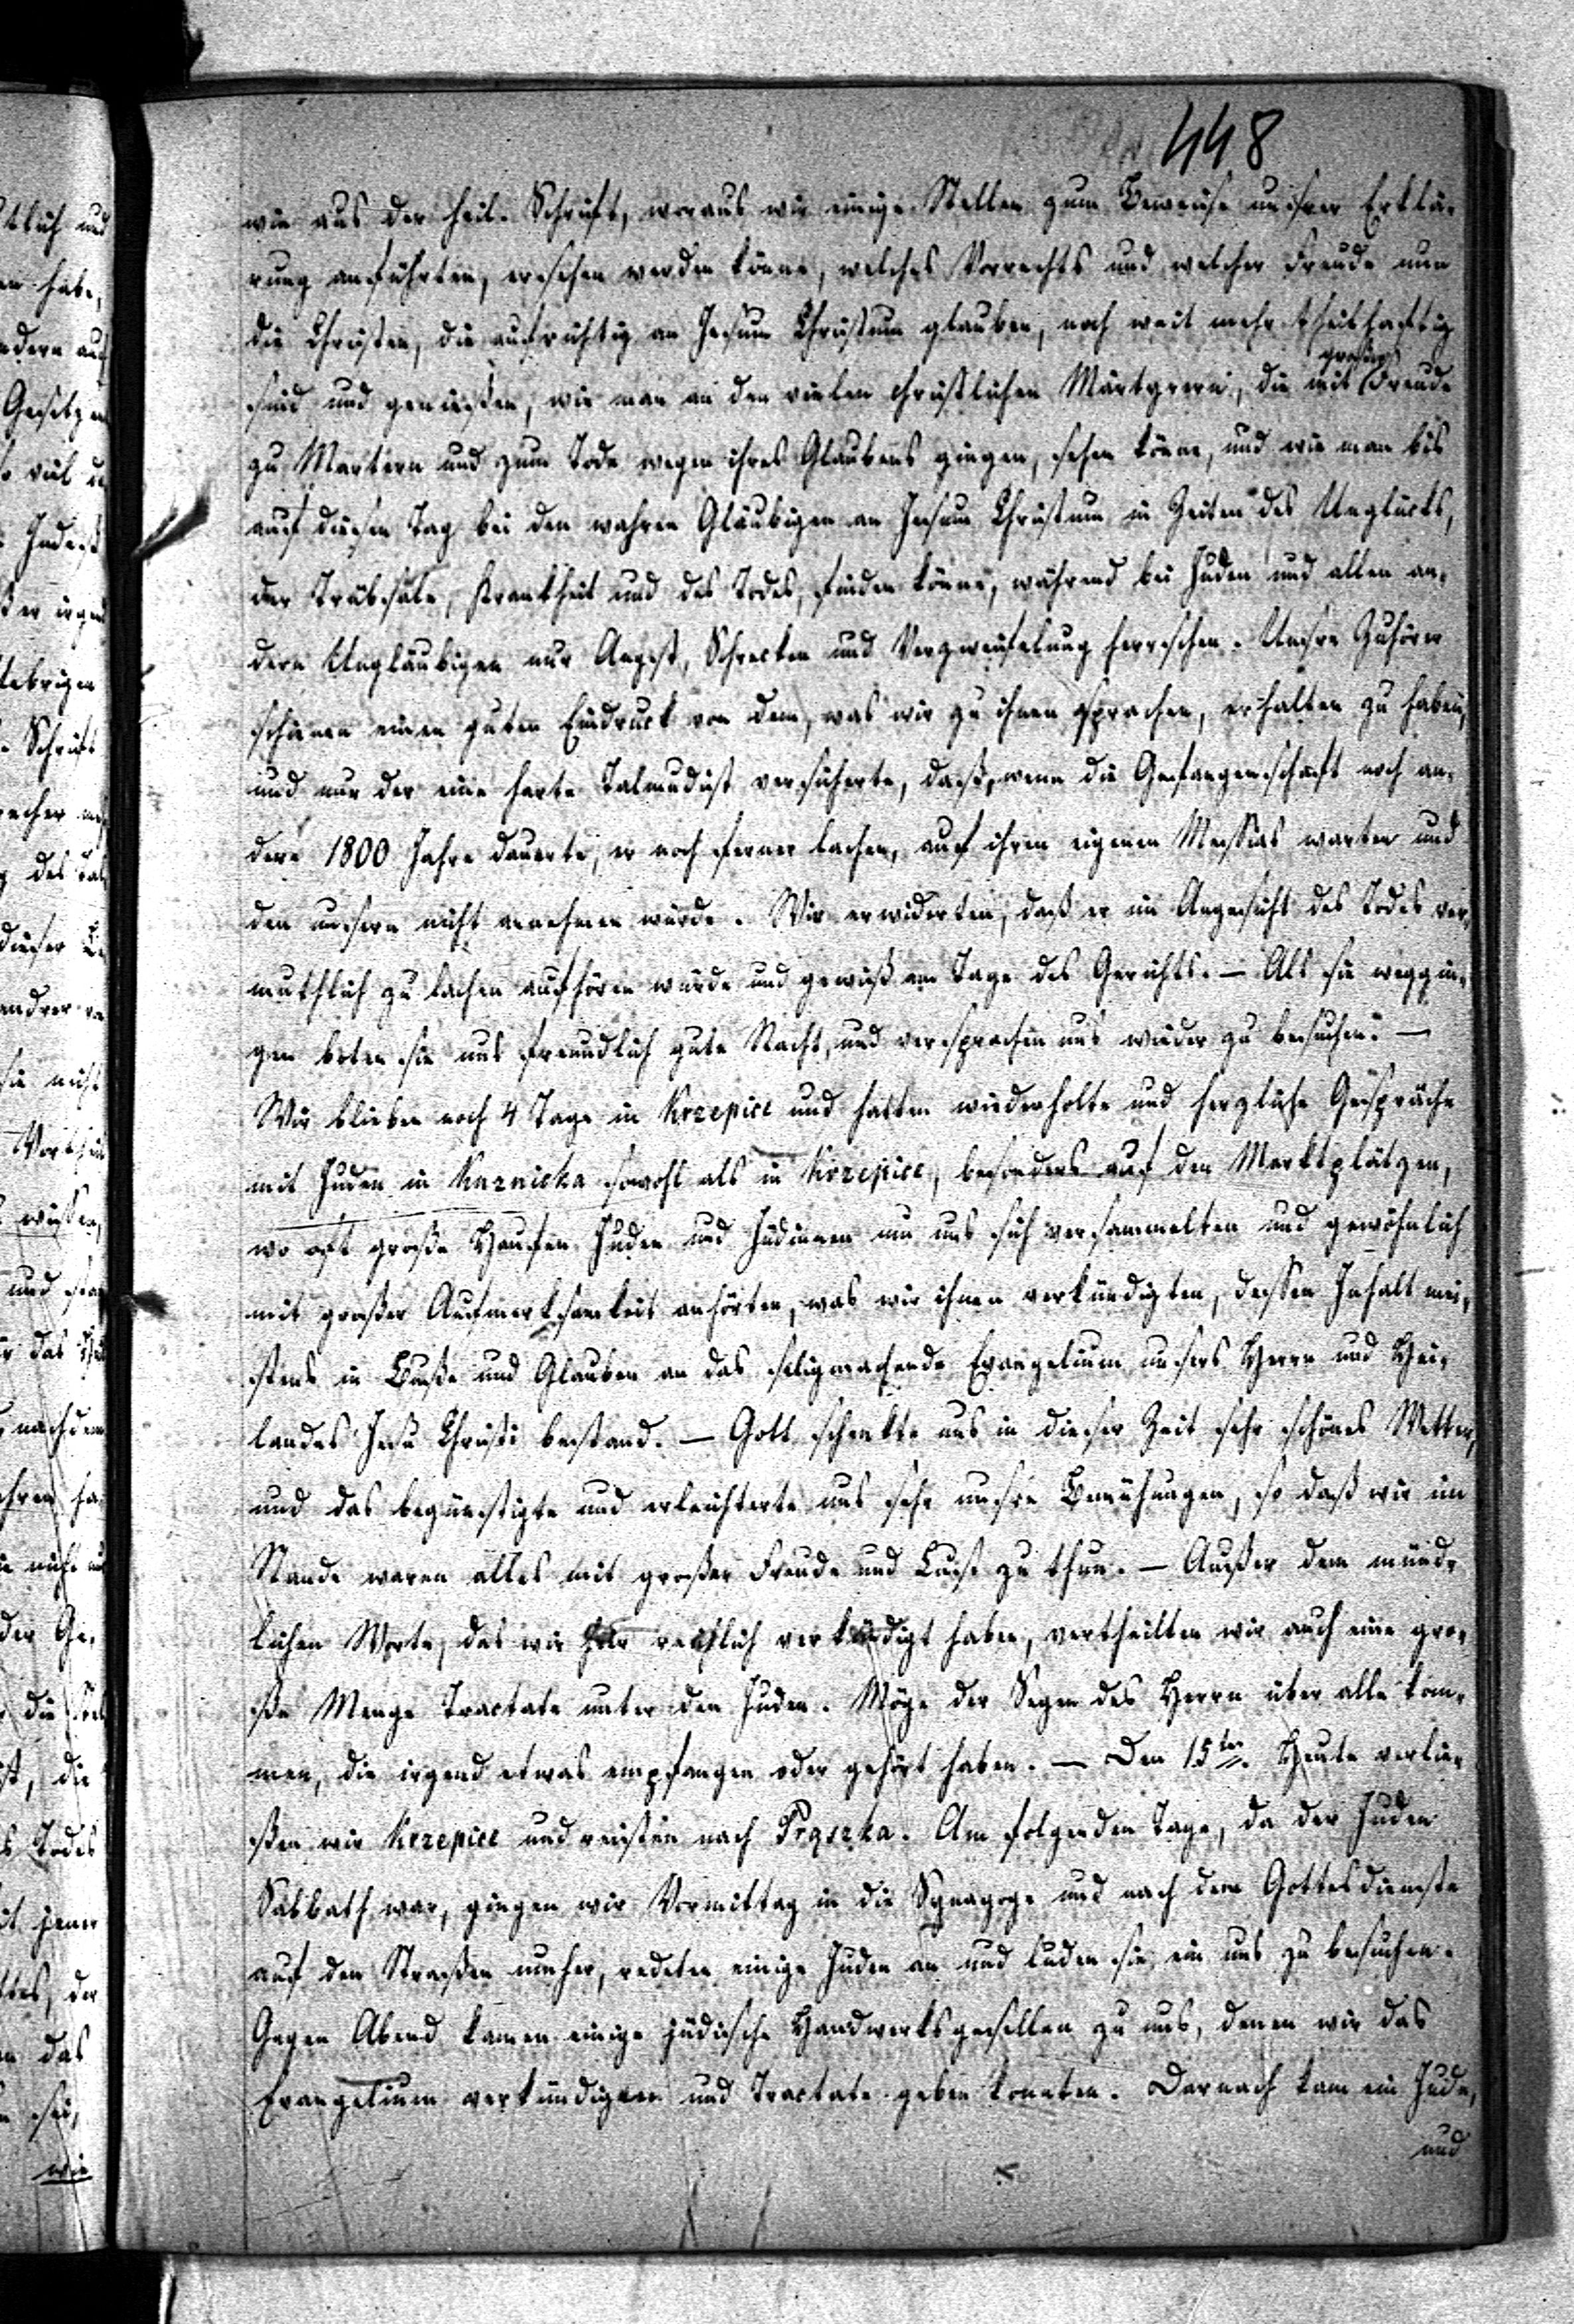 448
wie aus der heil. Schrift, woraus wir einige Stellen zum Beweise unsrer Erklä-
rung anführten, ersehen werden könne, welches Vorrechts und welcher Freude nun
die Christen, die aufrichtig an Jesum Christum glauben, noch weit mehr theilhaftig
sind und genießen, wie man an den vielen christlichen Märtyrern, die mit großer Freude
zu Martern und zum Tode wegen ihres Glaubens gingen, sehen könne, und wie man bis
auf diesen Tag bei den wahren Gläubigen an Jesum Christum in Zeiten des Unglücks,
der Trübsale, Krankheit und des Todes, finden könne, während bei Juden und allen an-
dern Ungläubigen nur Angst, Schrecken und Verzweifelung herrschen. Unsre Zuhörer
schienen einen guten Eindruck von dem, was wir zu ihnen sprachen, erhalten zu haben,
und nur der eine harte Talmudist versicherte, daß, wenn die Gefangenschaft noch an-
dere 1800 Jahre dauerte, er noch ferner lachen, auf ihren eigenen Messias warten und
den unsern nicht annehmen würde. Wir erwiderten, daß er im Angesicht des Todes ver-
muthlich zu lachen aufhören würde und gewiß am Tage des Gerichts. — Als sie weggin-
gen boten sie uns freundlich gute Nacht, und versprachen uns wieder zu besuchen. —
Wir blieben noch 4 Tage in Krzepice und hatten wiederholte und herzliche Gespräche
mit Juden in Kuznicka sowohl als in Krzepice, besonders auf den Marktplätzen,
wo oft große Haufen Juden und Jüdinnen um uns sich versammelten und gewöhnlich
mit großer Aufmerksamkeit anhörten, was wir ihnen verkündigten, dessen Inhalt mei-
stens in Buße und Glauben an das seligmachende Evangelium unsers Herrn und Hei-
landes Jesu Christi bestand. — Gott schenkte uns in dieser Zeit sehr schönes Wetter,
und das begünstigte und erleichterte uns sehr unsre Bemühungen, so daß wir im
Stande waren alles mit großer Freude und Lust zu thun. — Außer dem münd-
lichen Worte, das wir hier reichlich verkündigt haben, vertheilten wir auch eine gro-
ße Menge Tractate unter den Juden. Möge der Segen des Herrn über alle kom-
men, die irgend etwas empfangen oder gehört haben. — Den 15ten. Heute verlie-
ßen wir Krzepice und reisten nach Praszka. Am folgenden Tage, da der Juden
Sabbath war, gingen wir Vormittag in die Synagoge und nach dem Gottesdienste
auf den Straßen umher, redeten einige Juden an und luden sie ein uns zu besuchen.
Gegen Abend kamen einige jüdische Handwerksgesellen zu uns, denen wir das
Evangelium verkündigen und Tractate geben konnten. Darnach kam ein Jude,
und